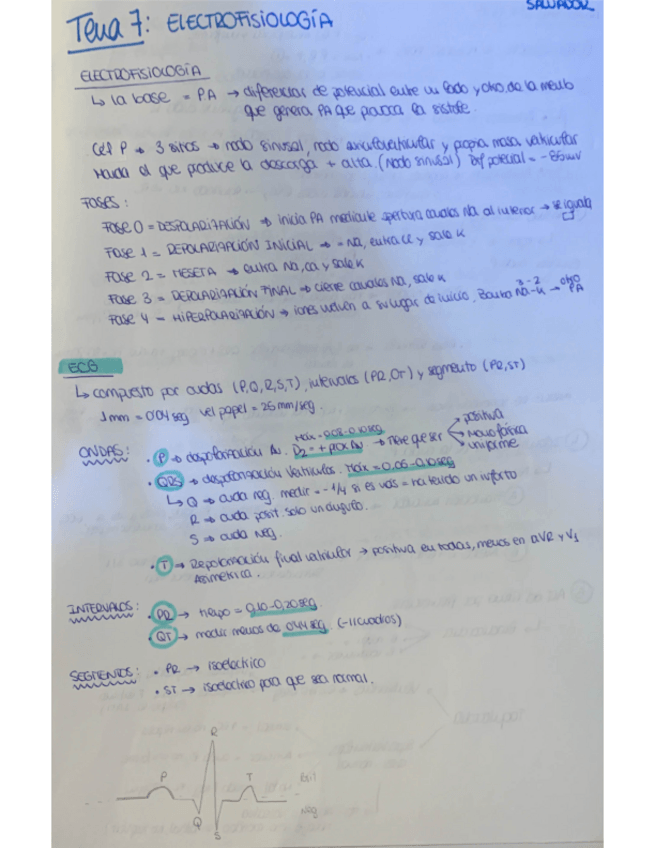 SALVADOR
Tema 7: ELECTROFISIOLOGÍA
ELECTROFISIOLOGÍA
↳ la base = PA → diferencias de potencial entre un lado y otro de la memb
que genera PA que provoca la sístole.
Cél P → 3 sitios → nodo sinusal, nodo auriculoventricular y propia masa ventricular
Manda el que produce la descarga + alta. (Nodo sinusal) potencial = -85mv
FASES:
FASE 0 = DESPOLARIZACIÓN → inicia PA mediante apertura canales Na al interior → se iguala
FASE 1 = REPOLARIZACIÓN INICIAL → - Na, entra Cl y sale K
FASE 2 = MESETA → entra Na, Ca y sale K
FASE 3 = REPOLARIZACIÓN FINAL → cierre canales Na, sale K
FASE 4 = HIPERPOLARIZACIÓN → iones vuelven a su lugar de inicio, Bomba Na-K → otro PA
3 - 2
ECG
↳ compuesto por ondas (P,Q,R,S,T), intervalos (PR,QT) y segmento (PR,ST)
1mm = 0'04 seg vel papel = 25mm/seg.
ONDAS: · P → despolarización Au. Máx = 0,08-0,10 seg. D2 = + → tiene que ser
positiva
monofásica
uniforme
· QRS → despolarización ventrículos. Máx = 0,06-0,10 seg
↳ Q → onda neg. medir = - 1/4 si es más = ha tenido un infarto
R → onda posit. solo un
S → onda neg.
· T → Repolarización final ventricular → positiva en todas, menos en aVR y V1
Asimétrica.
INTERVALOS: · PR → tiempo = 0,10-0,20 seg.
· QT → medir menos de 0'44 seg (-11 cuadros)
SEGMENTOS: · PR → isoeléctrico
· ST → isoeléctrico para que sea normal.
R
P
T
Posit
Neg
Q
S